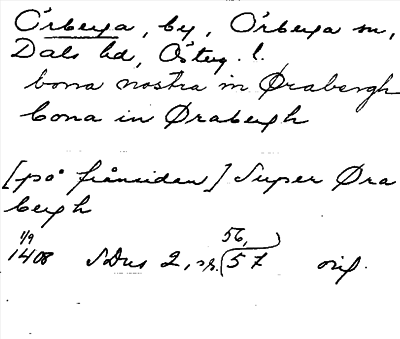 Örberga, by, Örberga sn,
Dals hd, Östg. l.
bona nostra in Ørabergh
bona in Ørabergh
[på frånsidan] Super Øra
bergh
1/9 1408 SDns 2, nr. (56,) 57 orig.